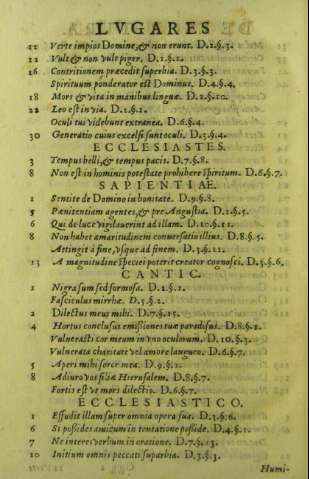 LVGARES
12 Verte impios Domine,& non erunt. D.2.§.3.
12 Vult & non vult piger. D.1.§.1.
16 Contritionem præcedit superbia. D.3.§.3.
Spirituum ponderator est Dominus. D.4.§.4.
18 Mors & vita in manibus linguæ. D.2.§.10.
22 Leo est in via. D.1.§.1.
Oculi tui videbunt extranea. D.6.§.4.
30 Generatio cuius excelsi sunt oculi. D.3.§.4.
ECCLESIASTES.
3 Tempus belli,& tempus pacis. D.7.§.8.
8 Non est in hominis potestate prohibere spiritum. D.6.§.7.
SAPIENTIÆ.
1 Sentite de Domino in bonitate. D.9.§.8.
5 Pænitentiam agentes,& præ Angustia. D.2.§.5.
6 Qui de luce vigilauerint ad illam. D.10.§.11.
8 Non habet amaritudinem conuersatio illius. D.8.§.5.
Attingit à fine, vsque ad finem. D.3.§.12.
13 A magnitudine speciei poterit creator cognosci. D.5.§.6.
CANTIC.
1 Nigra sum sed formosa. D.2.§.1.
Fasciculus mirrhæ. D.5.§.2.
2 Dilectus meus mihi. D.7.§.15.
4 Hortus conclusus emissiones tuæ paradisus. D.8.§.1.
Vulnerasti cor meum in vno oculorum. D.10.§.3.
Vulnerata charitate vel amore langueo. D.6.§.7.
5 Aperi mihi soror mea. D.9.§.1.
8 Adiuro vos filiæ Hierusalem. D.8.§.7.
Fortis est vt mors dilectio. D.6.§.7.
ECCLESIASTICO.
1 Effudit illam super omnia opera sua. D.3.§.6.
6 Si possides amicum in tentatione posside. D.4.§.1.
7 Ne iteres verbum in oratione. D.7.§.13.
10 Initium omnis peccati superbia. D.3.§.3.
Humi-